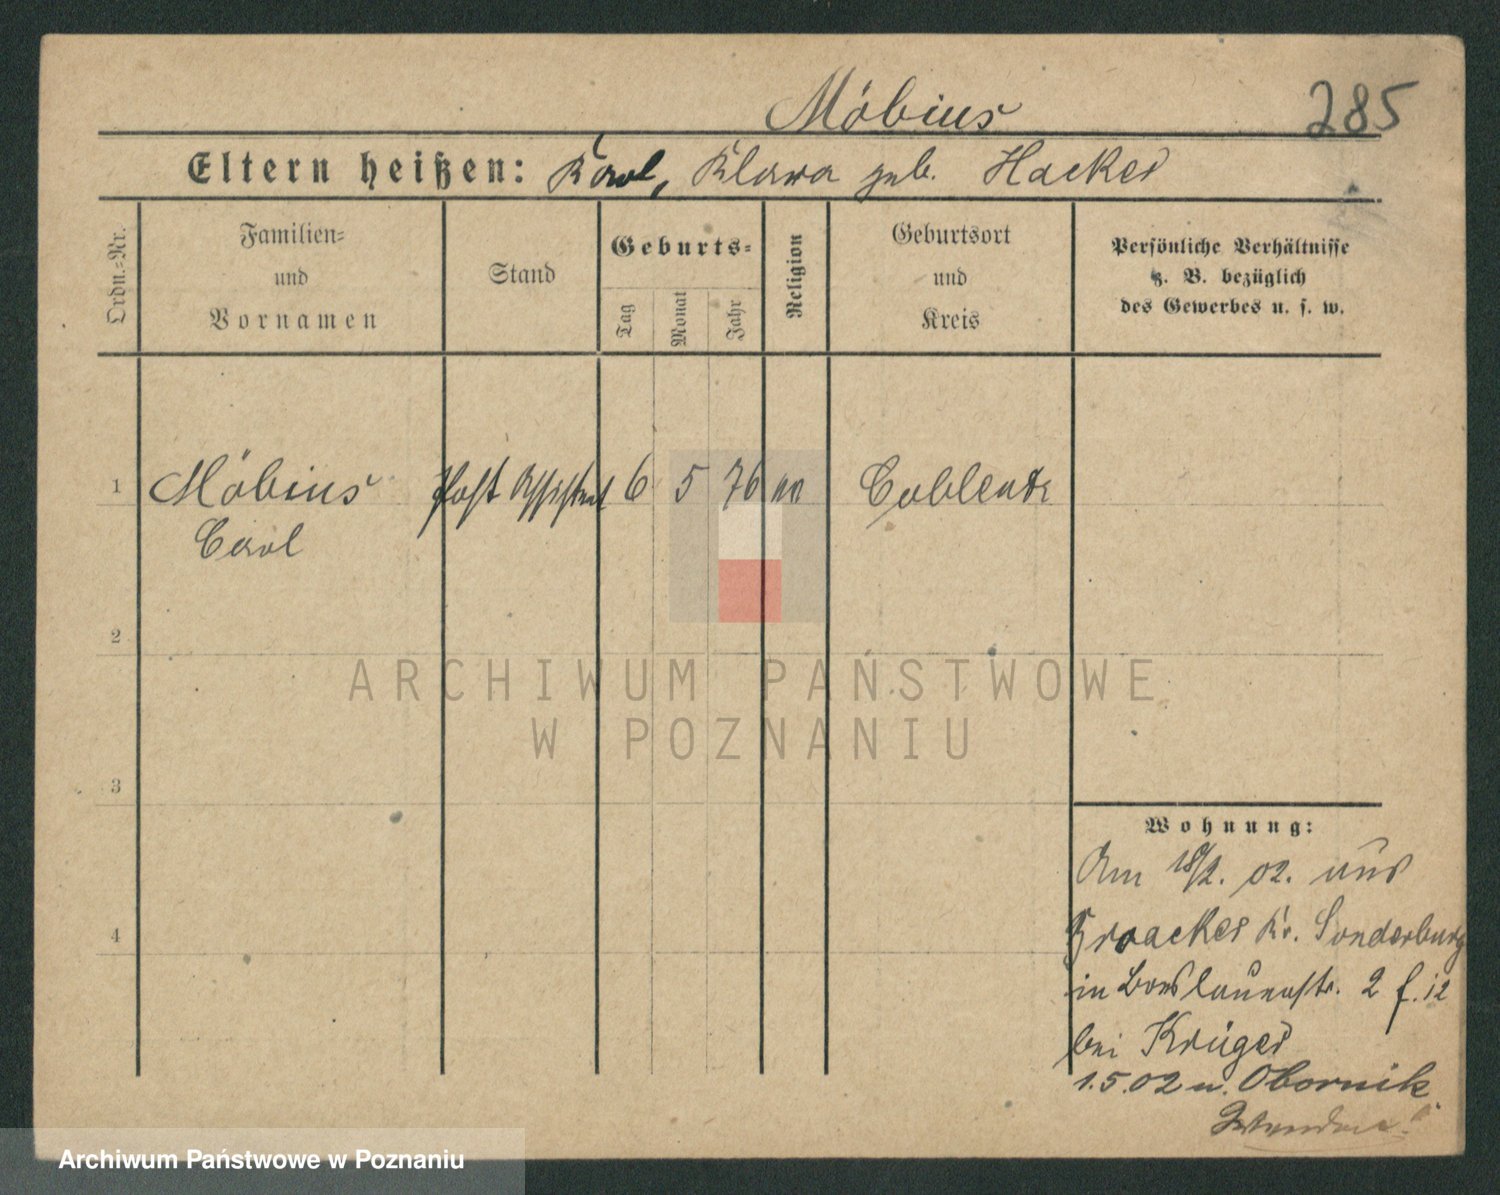 Möbius
285
Eltern heißen: Karl, Klara geb. Hacker
Ordn.-Nr.
Familien-
und
Vornamen
Stand
Geburts-
Tag
Monat
Jahr
Religion
Geburtsort
und
Kreis
Persönliche Verhältnisse
z. B. bezüglich
des Gewerbes u. s. w.
1 Möbius Post Assistent 6 5 76 Coblentz
Carl
2
3
4
Wohnung:
Am 18/2. 02. aus
Kr. Sonderburg
in 2
bei Krüger
1.5.02 n. Obornik
ARCHIWUM PAŃSTWOWE
W POZNANIU
Archiwum Państwowe w Poznaniu